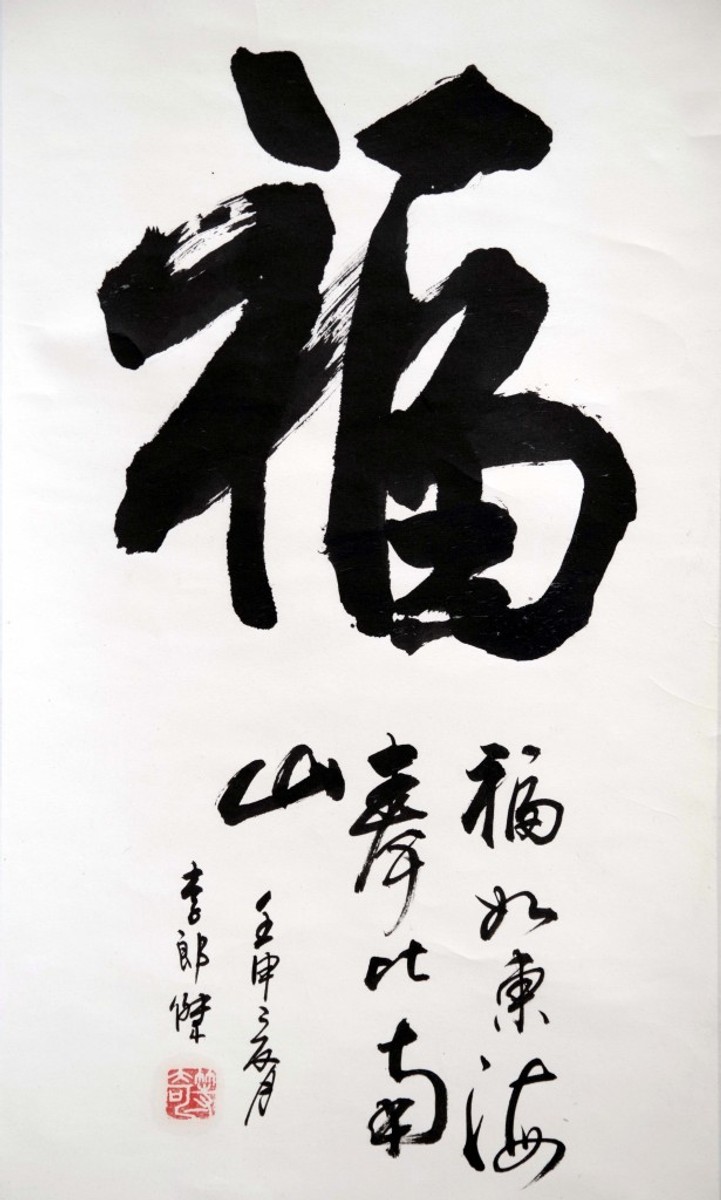 福
福如東海
壽比南
山
壬申
月
李郎傑